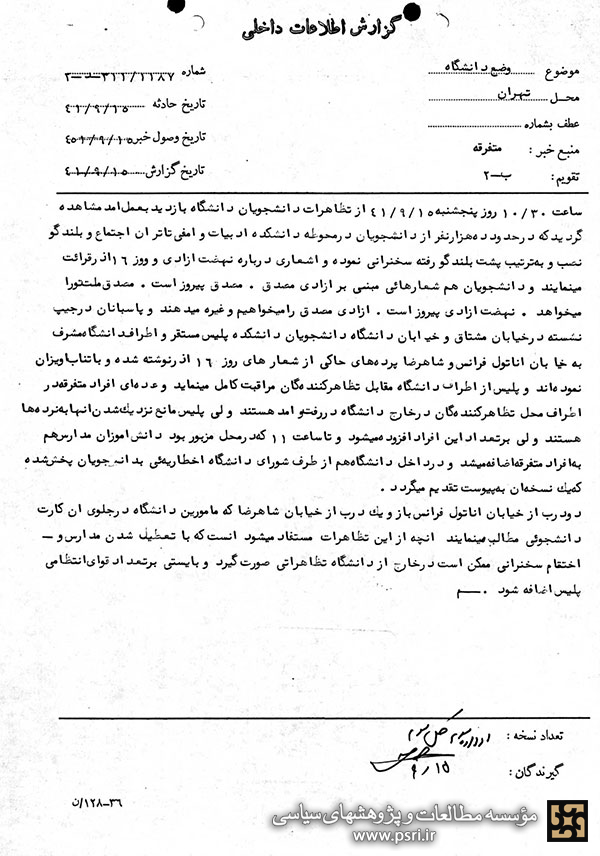 گزارش اطلاعات داخلی
موضوع وضع دانشگاه
محل تهران
عطف بشماره
منبع خبر : متفرقه
تقویم: ب-۲
شماره ۳۱۱/۱۱۸۷
تاریخ حادثه ۴۱/۹/۱۵
تاریخ وصول خبر ۱۵/۹/
تاریخ گزارش ۴۱/۹/۱۵
ساعت ۱۰/۳۰ روز پنجشنبه ۴۱/۹/۱۵ از تظاهرات دانشجویان دانشگاه بازدید بعمل‌امد مشاهده
گردید که درحدود دهزارنفر از دانشجویان درمحوطه دانشکده ادبیات و امفی‌تاتر ان اجتماع و بلندگو
نصب و به‌ترتیب پشت بلندگو رفته سخنرانی نموده و اشعاری درباره نهضت ازادی و ووز ۱۶اذر قرائت
مینمایند و دانشجویان هم شعارهائی مبنی بر ازادی مصدق . مصدق پیروز است . مصدق
میخواهد . نهضت ازادی پیروز است . ازادی مصدق را میخواهیم و غیره میدهند و پاسبانان درجیپ
نشسته درخیابان مشتاق و خیابان دانشگاه دانشجویان دانشکده پلیس مستقر و اطراف دانشگاه مشرف
به خیابان اناتول فرانس و شاهرضا پرده‌های حاکی از شعار های روز ۱۶ اذر نوشته شده و باتناب اویزان
نموده‌اند و پلیس از اطراف دانشگاه مقابل تظاهرکننده‌گان مراقبت کامل مینماید و عده‌ای افراد متفرقه در
اطراف محل تظاهرکننده‌گان درخارج دانشگاه دررفت و امد هستند و لی پلیس مانع نزدیک شدن انها به نرده‌ها
هستند و لی برتعداد این افراد افزوده میشود و تاساعت ۱۱ که درمحل مزبور بود دانش اموزان مدارس هم
به افراد متفرقه اضافه میشد و درداخل دانشگاه هم از طرف شورای دانشگاه اخطاریه‌ئی بدانجویان پخش شده
که یک نسخه ان به پیوست تقدیم میگردد .
دودرب از خیابان اناتول فرانس باز و یک درب از خیابان شاهرضا که مامورین دانشگاه درجلوی ان کارت
دانشجوئی مطالبه مینمایند انچه از این تظاهرات مستفاد میشود انست که با تعطیل شدن مدارس و -
اختقام سخنرانی ممکن است درخارج از دانشگاه تظاهراتی صورت گیرد و بایستی برتعداد قوای انتظامی
پلیس اضافه شود . م
تعداد نسخه :
گیرندگان :
۹/۱۵
۳۶-۱۲۸/ن
مؤسسه مطالعات و پژوهشهای سیاسی
www.psri.ir